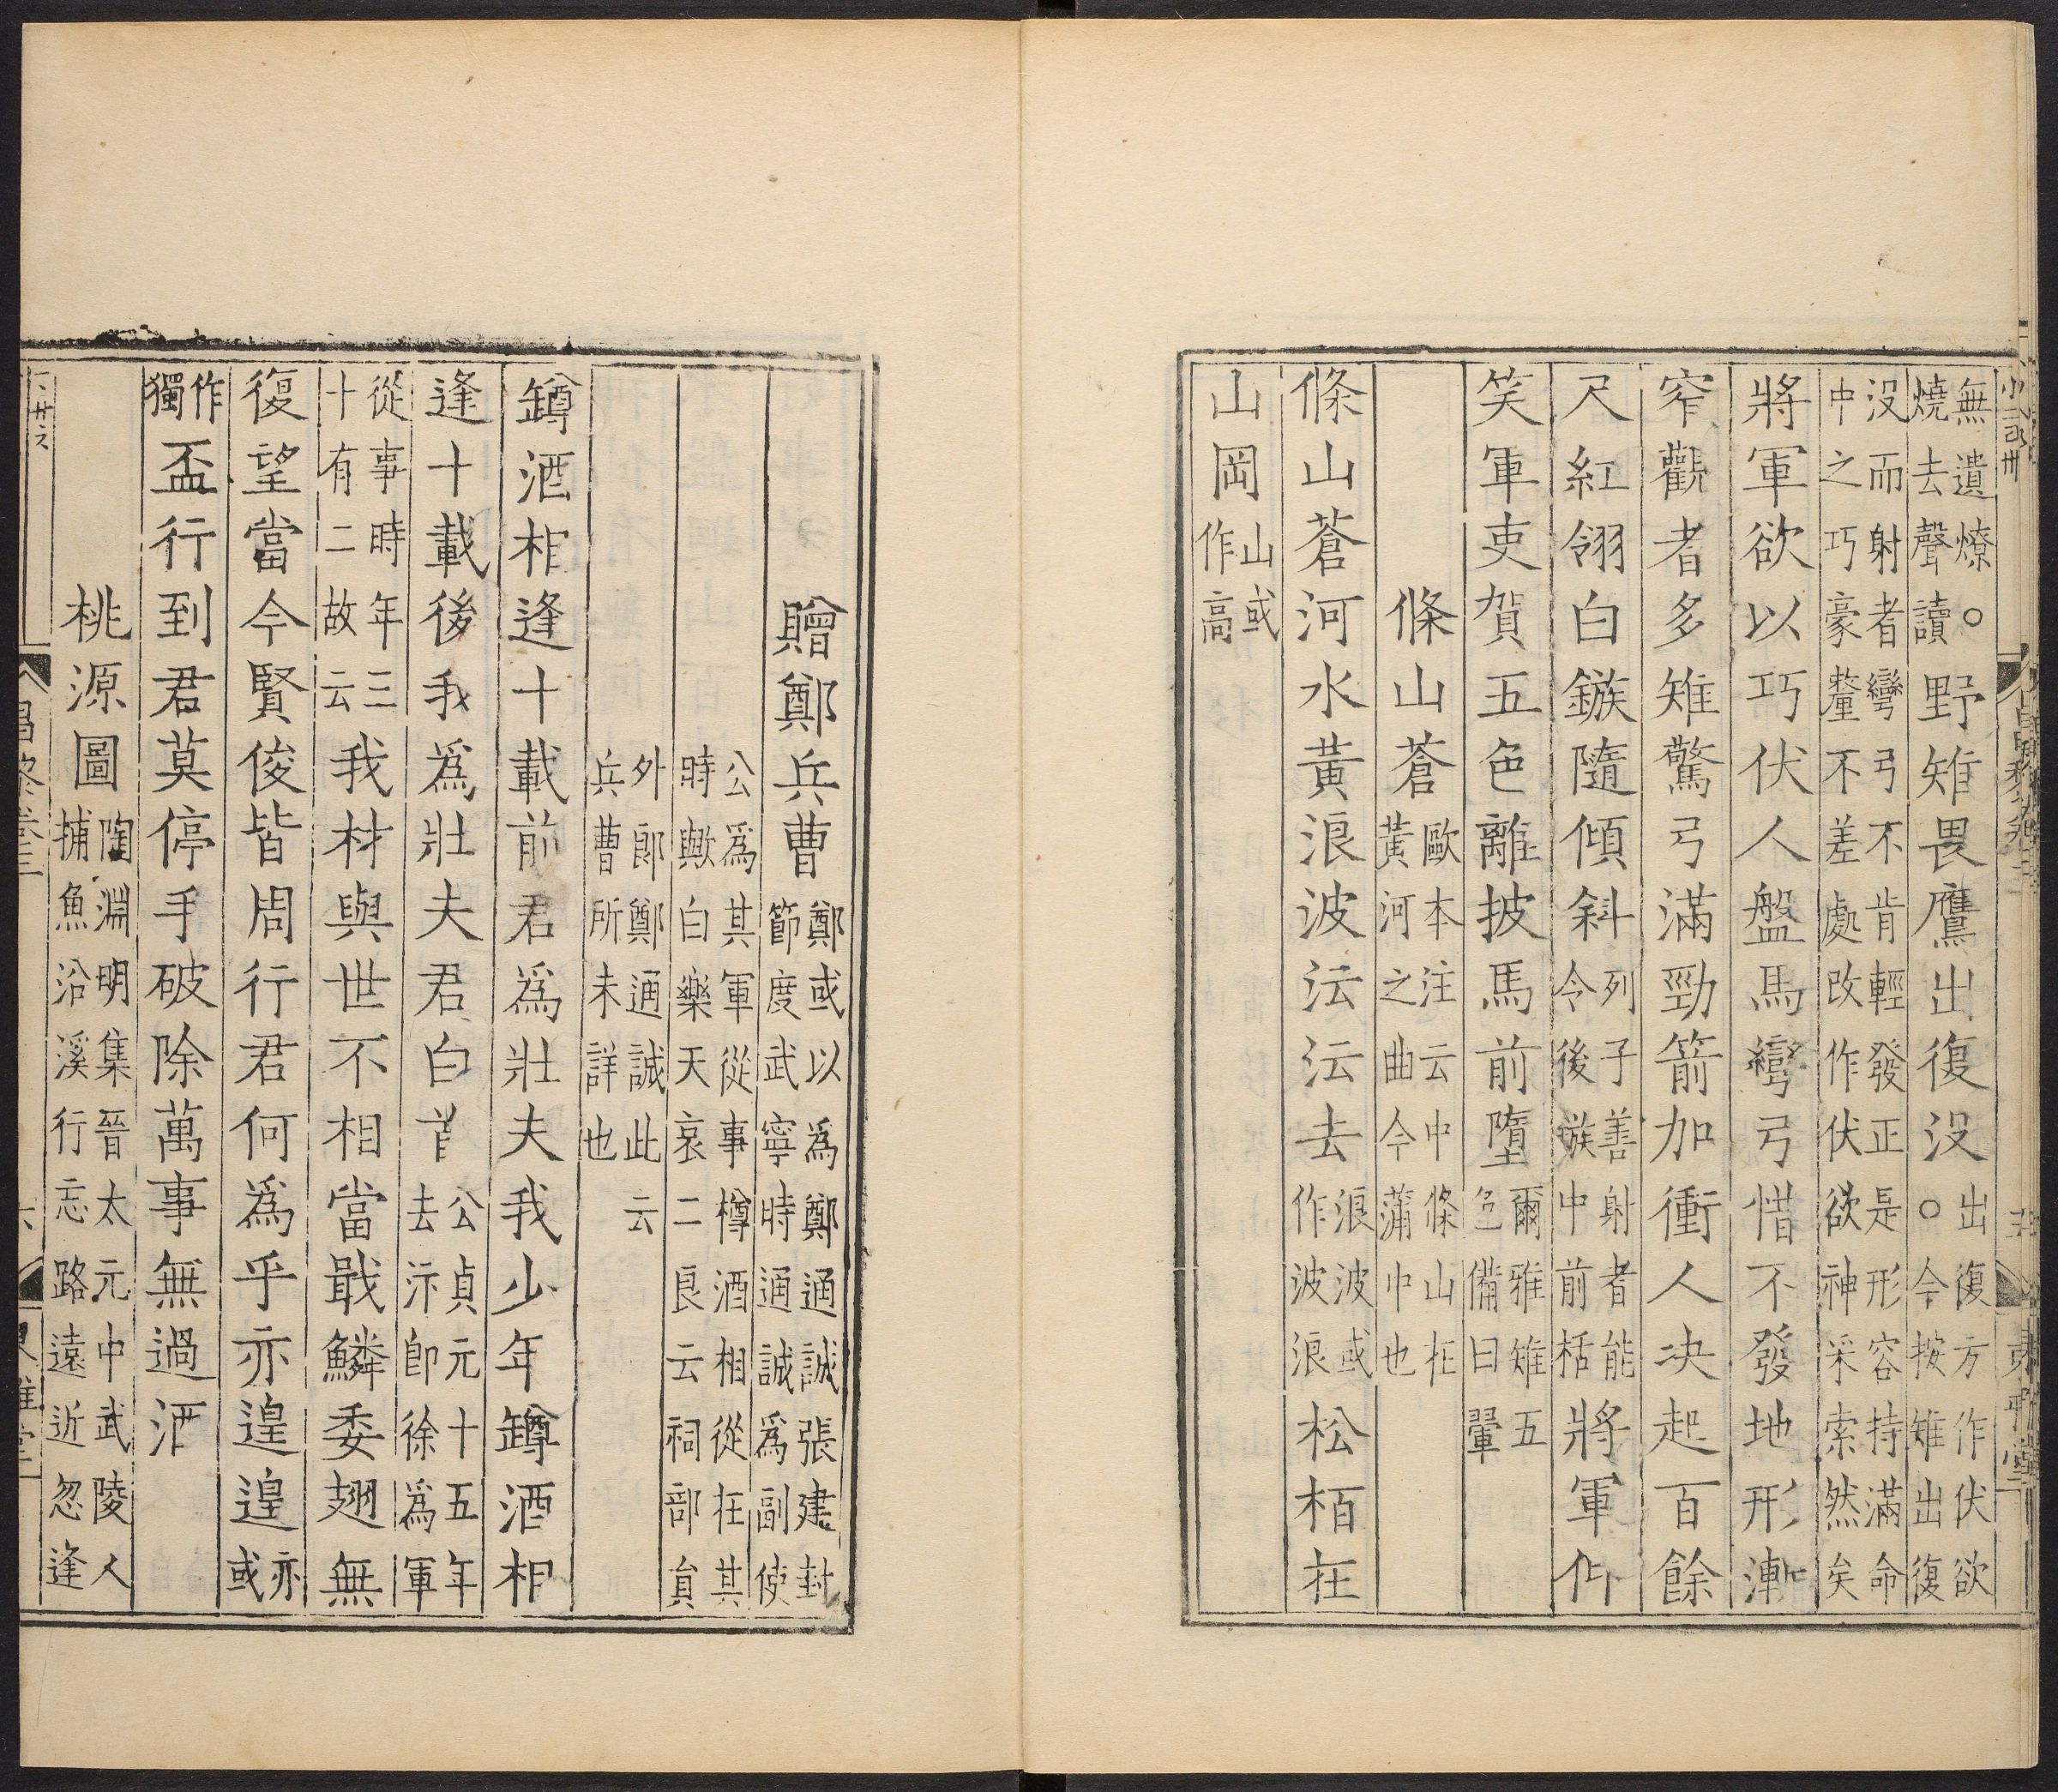 無遺燎○燒去聲讀野雉畏鷹出復没出復方作伏欲○今按雉出復
没而射者彎弓不肯輕發正是形容持滿命中之巧豪釐不差處改作伏欲神采索然矣
將軍欲以巧伏人盤馬彎弓惜不發地形漸
窄觀者多雉驚弓滿勁箭加衝人决起百餘
尺紅翎白鏃隨傾斜列子善射者能令後鏃中前栝將軍仰
笑軍吏賀五色離披馬前墮爾雅雉五色備曰翬
條山蒼歐本注云中條山在黄河之曲今蒲中也
條山蒼河水黄浪波沄沄去浪波或作波浪松栢在
山岡山或作高
贈鄭兵曹鄭或以爲鄭通誠張建封節度武寧時通誠爲副使
公爲其軍從事樽酒相從在其時歟白樂天哀二良云祠部員
外郎鄭通誠此云兵曹所未詳也
罇酒相逢十載前君爲壯夫我少年罇酒相
逢十載後我爲壯夫君白首公貞元十五年去汴卽徐爲軍
從事時年三十有二故云我材與世不相當戢鱗委翅無
復望當今賢俊皆周行君何爲乎亦遑遑亦或
作獨盃行到君莫停手破除萬事無過酒
桃源圖陶淵明集晉太元中武陵人捕魚沿溪行忘路遠近忽逢